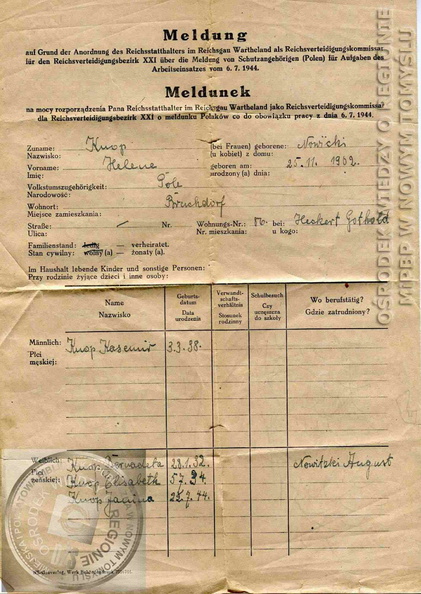 Meldung
auf Grund der Anordnung des Reichsstatthalters im Reichsgau Wartheland als Reichsverteidigungskommissar
für den Reichsverteidigungsbezirk XXI über die Meldung von Schutzangehörigen (Polen) für Aufgaben des
Arbeitseinsatzes vom 6. 7. 1944.
Meldunek
na mocy rozporządzenia Pana Reichsstatthalter im Reichsgau Wartheland jako Reichsverteidigungskommissar
dla Reichsverteidigungsbezirk XXI o meldunku Polsków co do obowiązku pracy z dnia 6. 7. 1944.
Zuname: Knop (bei Frauen) geborene: Nowicki
Nazwisko: (u kobiet) z domu:
Vorname: Helene geboren am: 25. 11. 1902.
Imię: urodzony (a) dnia:
Volkstumszugehörigkeit: Pole
Narodowość:
Wohnort: Bruchdorf
Miejsce zamieszkania:
Straße: Nr. Wohnungs-Nr.: bei: Heckert Gothold
Ulica: Nr. mieszkania: u kogo:
Familienstand: ledig — verheiratet.
Stan cywilny: wolny (a) — żonaty (a).
Im Haushalt lebende Kinder und sonstige Personen:
Przy rodzinie żyjące dzieci i inne osoby:
Name Geburtsdatum Verwandtschaftsverhältnis Schulbesuch Wo berufstätig?
Nazwisko Data urodzenia Stosunek rodzinny Czy uczęszcza do szkoły Gdzie zatrudniony?
Männlich: Knop Kasemir 3.3.38.
Płci męskiej:
Weiblich: Knop 28.1.32. Nowitzki August
Płci żeńskiej: Knop Elisabeth 5.7.34.
Knop Janina 22.7.44.
OŚRODEK WIEDZY O REGIONIE
MIPBP W NOWYM TOMYŚLU